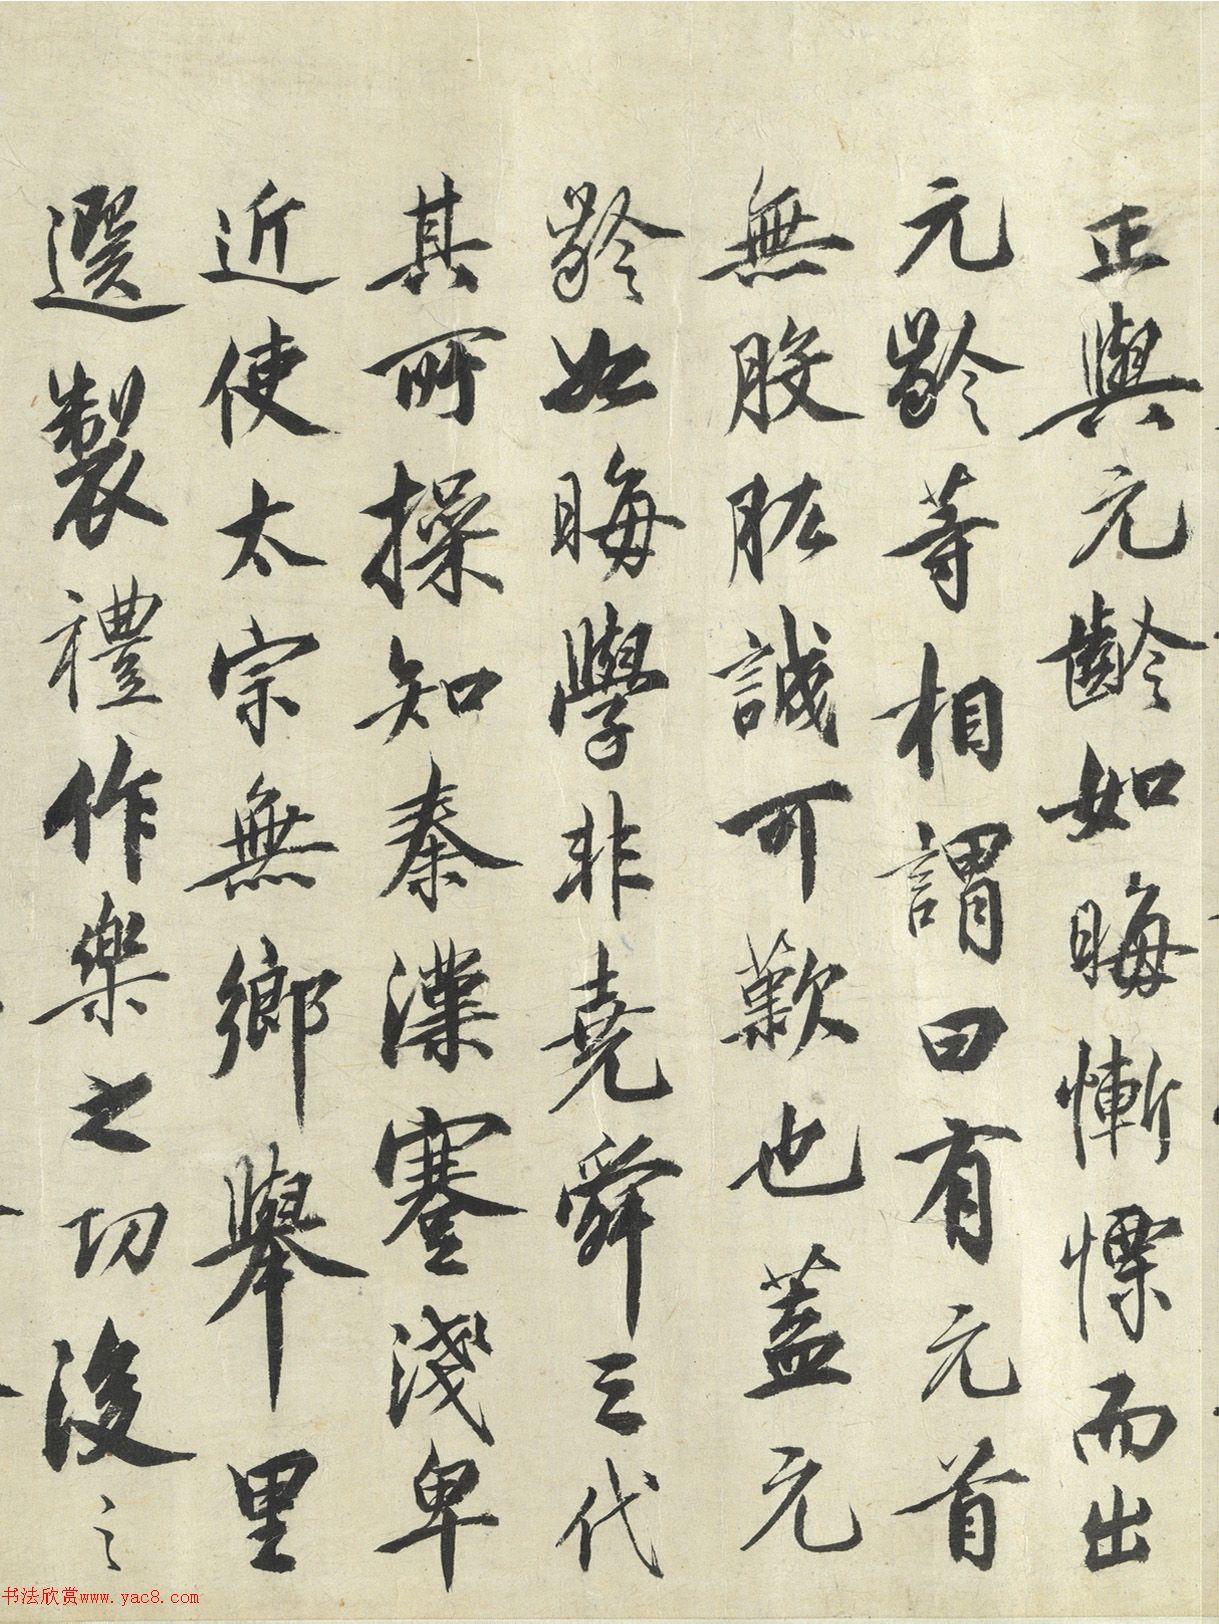 正與元齡如晦慚慄而出
元齡等相謂曰有元首
無股肱誠可歎也蓋元
齡如晦學非堯舜三代
其所操知秦漢蹇淺卑
近使太宗無鄉舉里
選製禮作樂之功後之
书法欣赏www.yac8.com